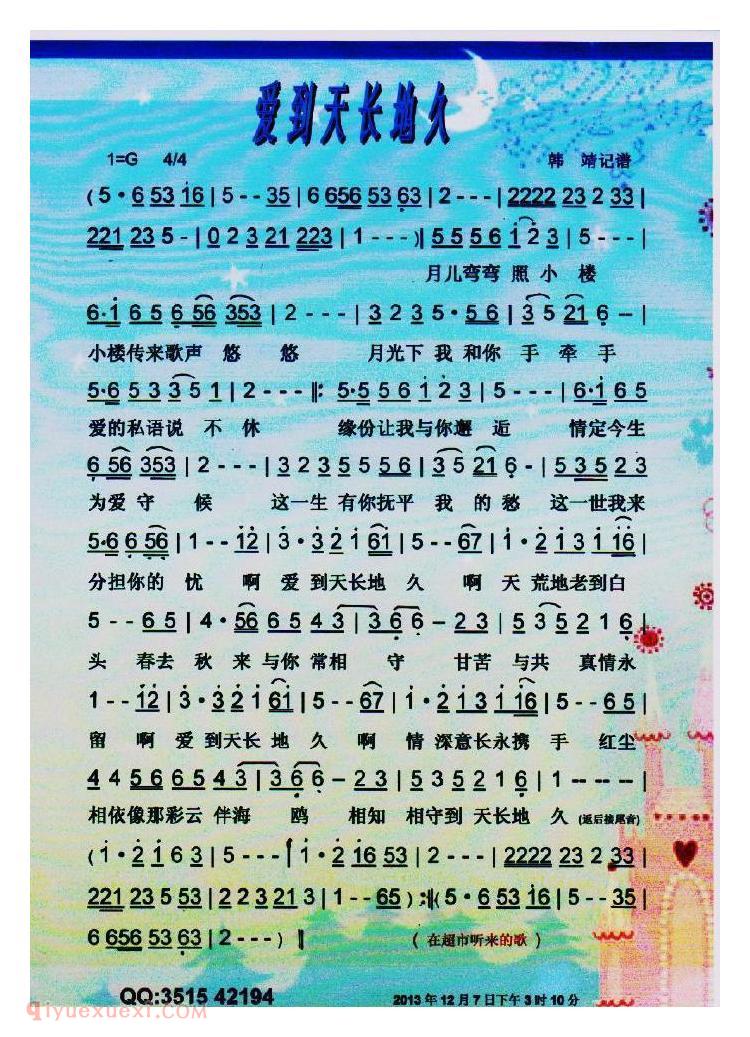 爱到天长地久
1=G 4/4 韩 靖记谱
(5·6 53 16 | 5 - - 35 | 6 656 53 63 | 2 - - - | 2222 23 2 33 |
221 23 5 - | 0 2 3 21 223 | 1 - - -)| 5 5 5 6 1 2 3 | 5 - - - |
月儿弯弯 照 小 楼
6·1 6 5 6 56 353 | 2 - - - | 3 2 3 5·5 6 | 3 5 21 6 - |
小楼传来歌声 悠 悠 月光下 我 和你 手 牵 手
5·6 5 3 3 5 1 | 2 - - - |: 5·5 5 6 1 2 3 | 5 - - - | 6·1 6 5
爱的私语说 不 休 缘份让我与你邂 逅 情定今生
6 56 353 | 2 - - - | 3 2 3 5 5 5 6 | 3 5 21 6 - | 5 3 5 2 3
为爱 守 候 这一生 有你抚平 我 的 愁 这一世我来
5·6 6 56 | 1 - - 12 | 3·3 2 1 61 | 5 - - 67 | 1·2 1 3 1 16 |
分担你的 忧 啊 爱 到天长地 久 啊 天 荒地老到白
5 - - 6 5 | 4·56 6 5 4 3 | 3 6 6 - 2 3 | 5 3 5 2 1 6 |
头 春去 秋 来 与你 常相 守 甘苦 与共 真情永
1 - - 12 | 3·3 2 1 61 | 5 - - 67 | 1·2 1 3 1 16 | 5 - - 6 5 |
留 啊 爱 到天长 地 久 啊 情 深意长永携 手 红尘
4 4 5 6 6 5 4 3 | 3 6 6 - 2 3 | 5 3 5 2 1 6 | 1 -- -- -- |
相依像那彩云 伴海 鸥 相知 相守到 天长地 久 (返后接尾音)
(1·2 1 6 3 | 5 - - - | 1·2 16 53 | 2 - - - | 2222 23 2 33 |
221 23 5 53 | 2 2 3 21 3 | 1 - - 65) :‖(5·6 53 16 | 5 - - 35 |
6 656 53 63 | 2 - - -)‖ (在超市听来的歌)
QQ:3515 42194 2013 年 12 月 7 日下午 3 时 10 分
qiyuexuexi.com